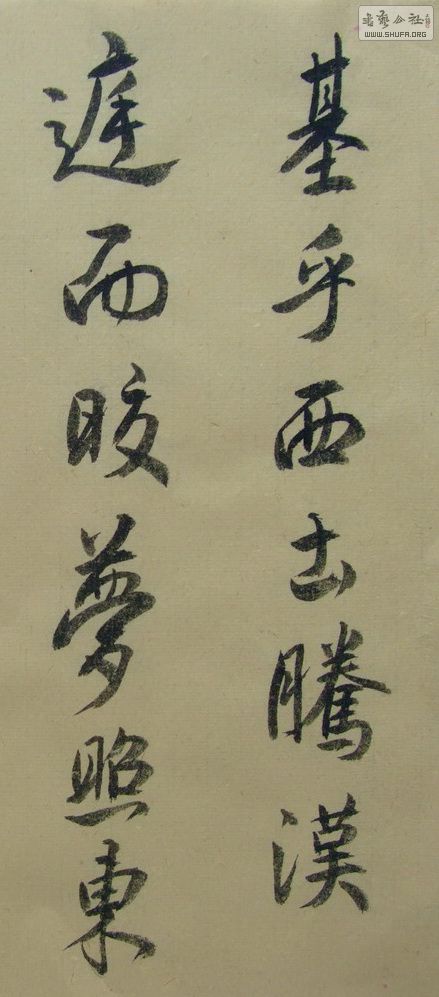 書藝公社
WWW.SHUFA.ORG
基乎西土騰漢
庭而皎夢照東